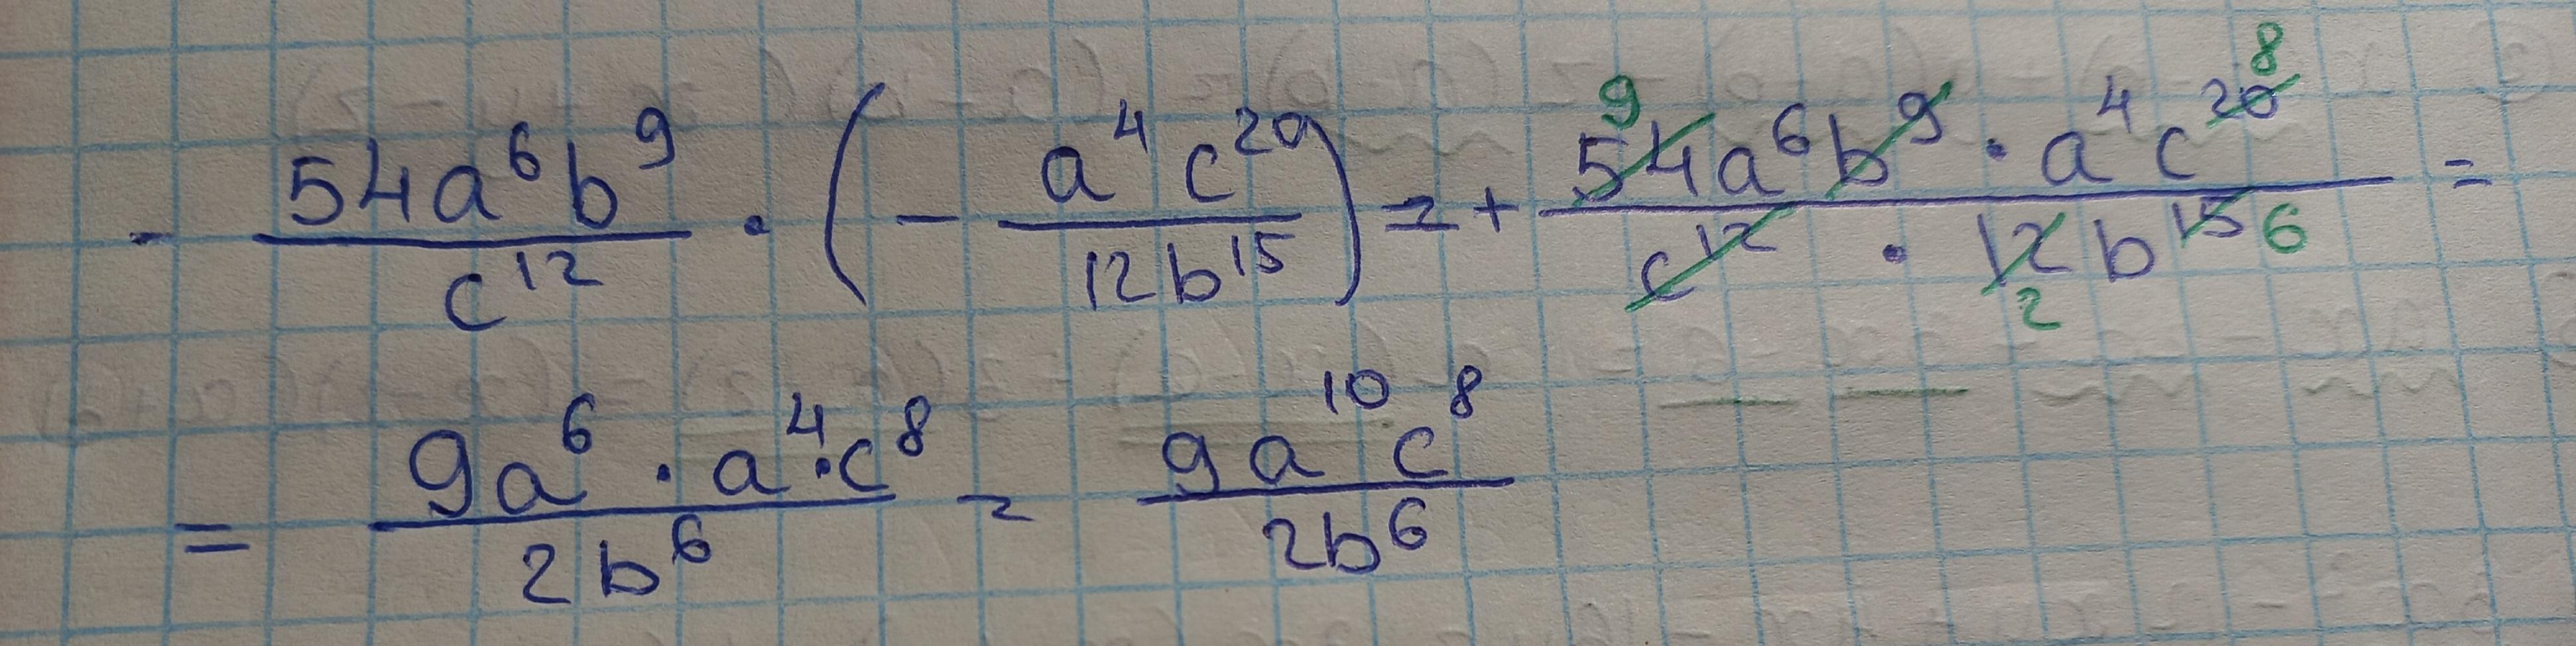 - \frac{54a^6b^9}{c^{12}} \cdot \left( - \frac{a^4c^{20}}{12b^{15}} \right) = + \frac{\overset{9}{\cancel{54}}a^6\cancel{b^9} \cdot a^4c^{\cancel{20}^8}}{\cancel{c^{12}} \cdot \underset{2}{\cancel{12}}b^{\cancel{15}6}} =
= \frac{9a^6 \cdot a^4 \cdot c^8}{2b^6} = \frac{9a^{10}c^8}{2b^6}